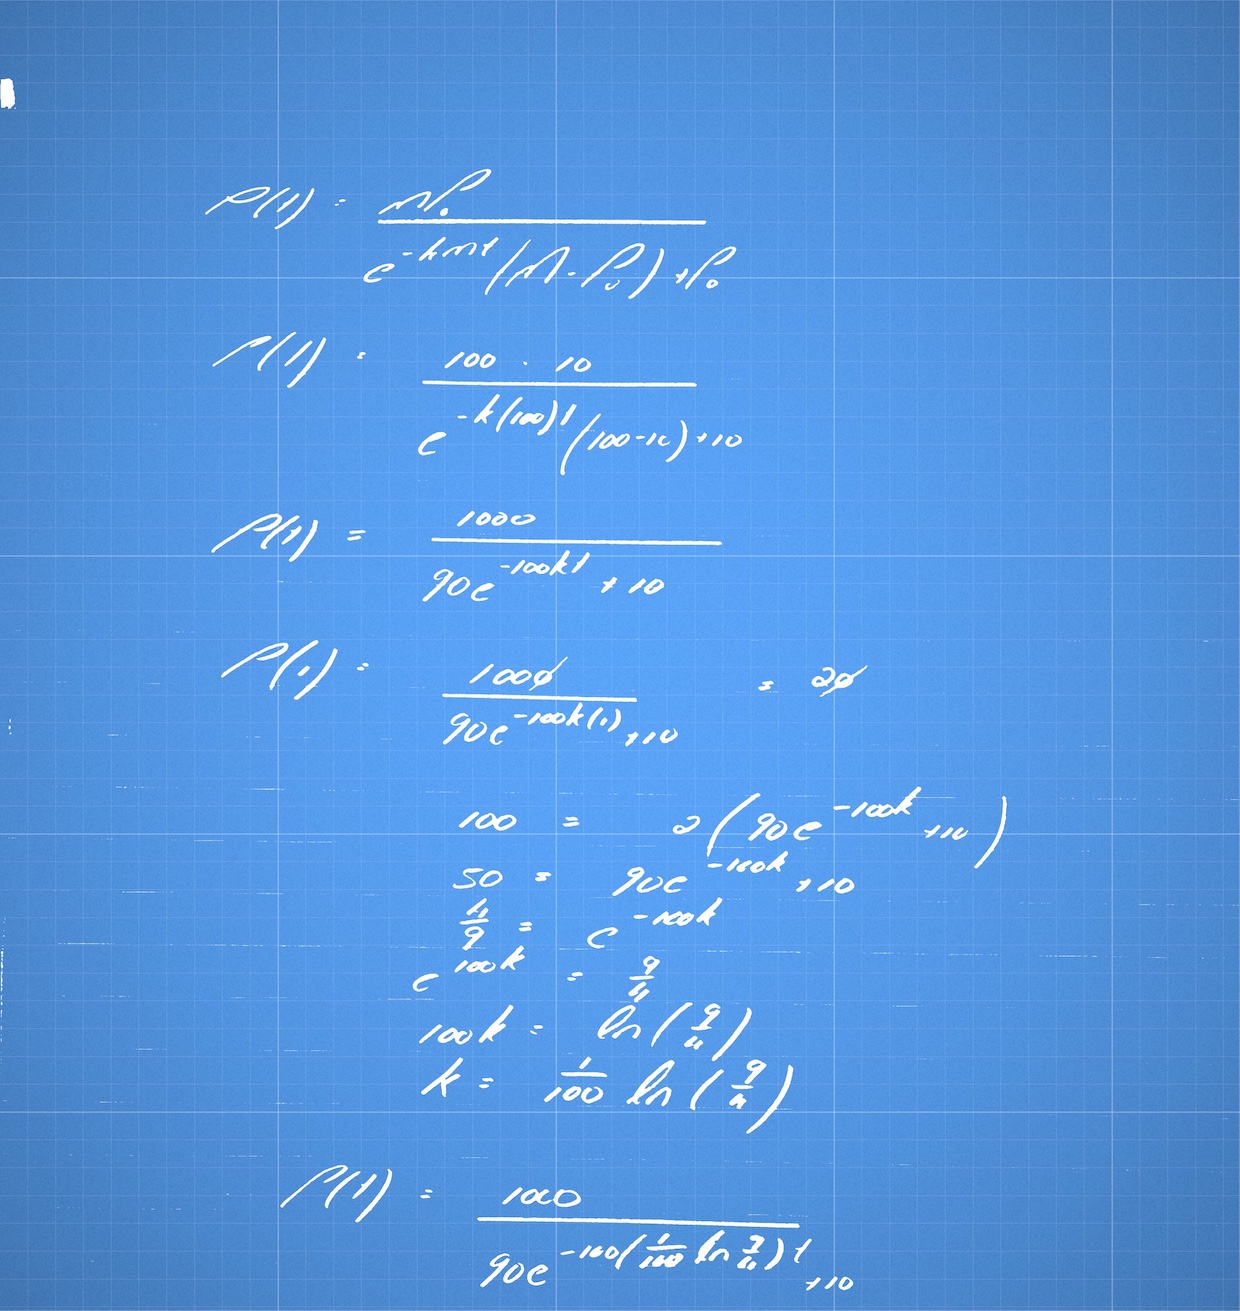 P(t) = MP₀ / (e^(-kMt) (M - P₀) + P₀)
P(t) = 100 · 10 / (e^(-k(100)t) (100-10) + 10)
P(t) = 1000 / (90e^(-100kt) + 10)
P(1) = 1000 / (90e^(-100k(1)) + 10) = 20
100 = 2 (90e^(-100k) + 10)
50 = 90e^(-100k) + 10
4/9 = e^(-100k)
e^(100k) = 9/4
100k = ln (9/4)
k = 1/100 ln (9/4)
P(t) = 1000 / (90e^(-100(1/100 ln 9/4)t) + 10)